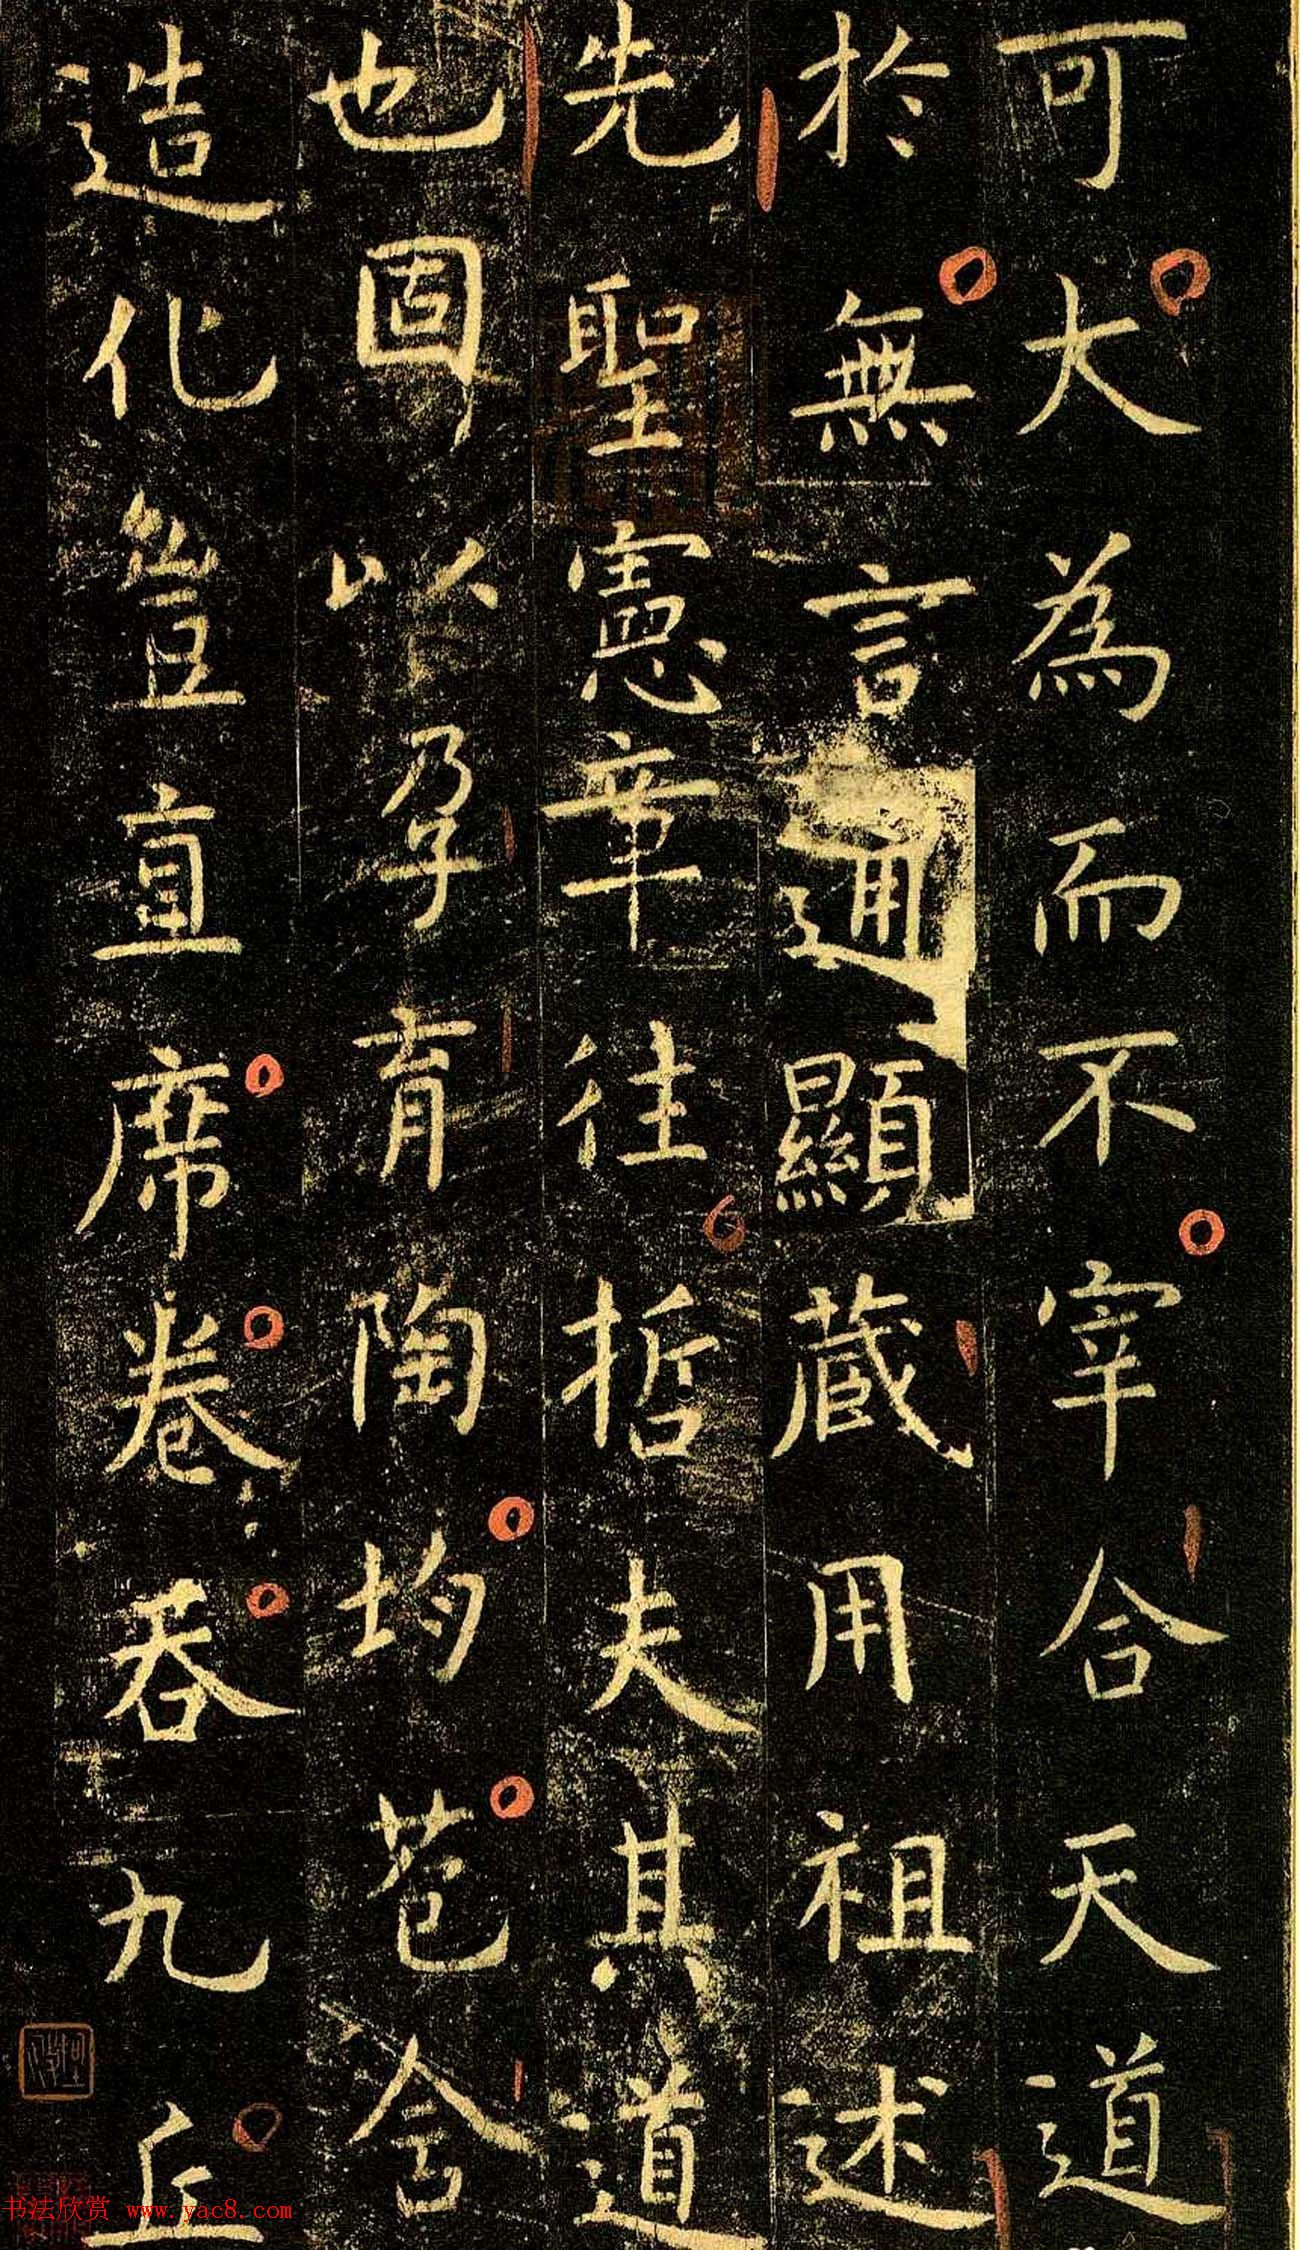 可大為而不宰合天道
於無言通顯藏用祖述
先聖憲章往哲夫其道
也固以孕育陶均苞含
造化豈直席卷吞九丘
书法欣赏 www.yac8.com